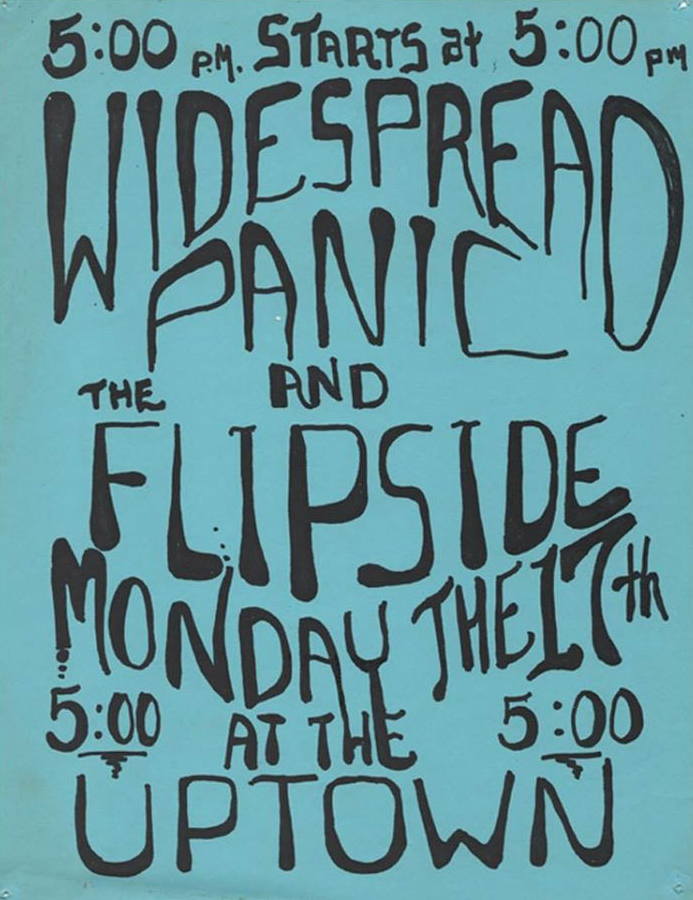 5:00 P.M. STARTS at 5:00 PM
WIDESPREAD
PANIC
THE AND
FLIPSIDE
MONDAY THE 17th
5:00 AT THE 5:00
UPTOWN